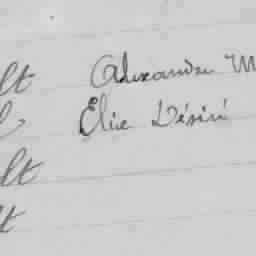 lt Alexandre M
Elie Désiré
lt
lt